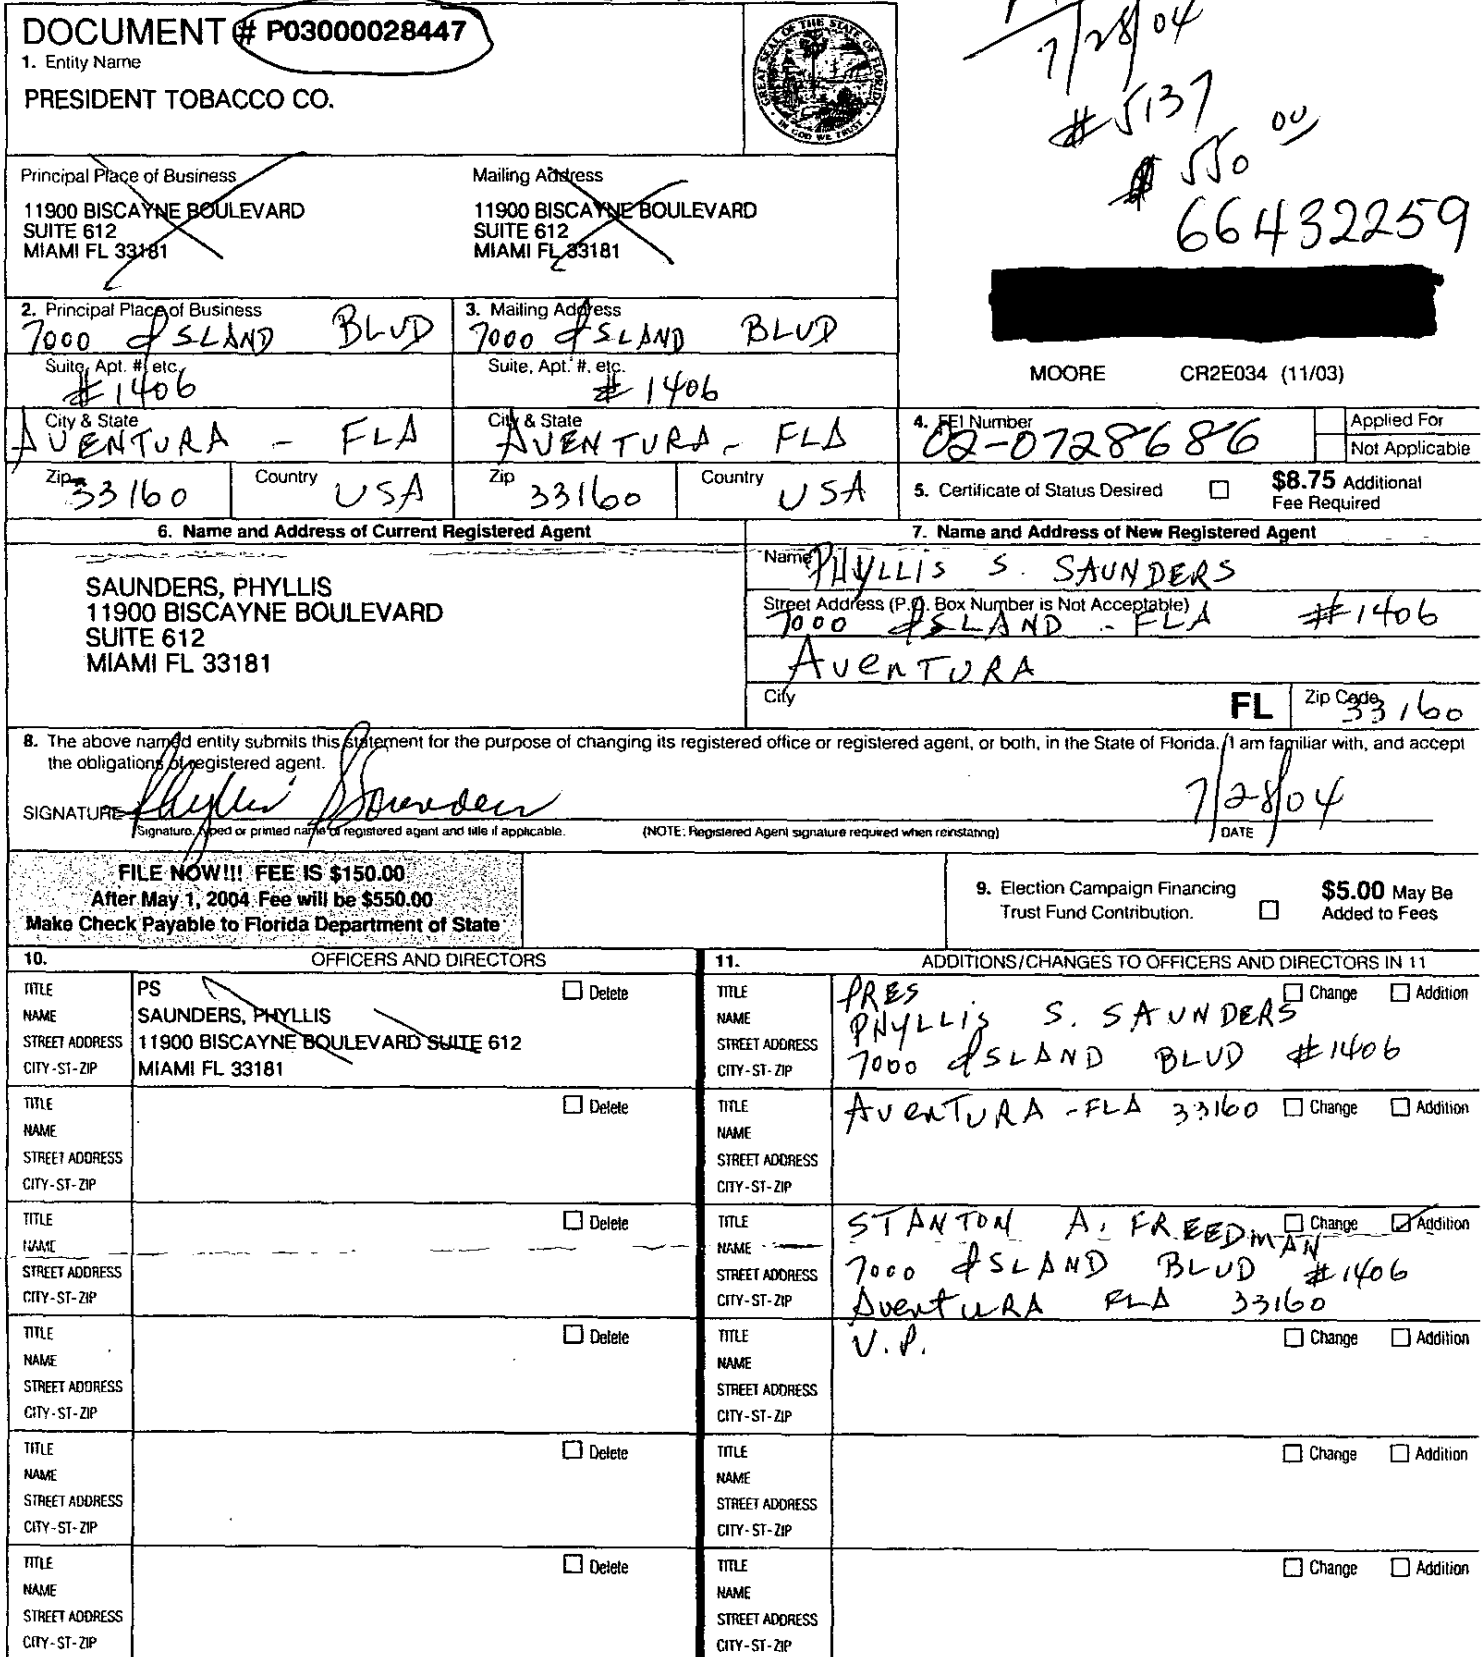 DOCUMENT # P03000028447
1. Entity Name
PRESIDENT TOBACCO CO.
GREAT SEAL OF THE STATE OF FLORIDA
IN GOD WE TRUST
7/28/04
#5137
$550 00
66432259
Principal Place of Business
11900 BISCAYNE BOULEVARD
SUITE 612
MIAMI FL 33181
Mailing Address
11900 BISCAYNE BOULEVARD
SUITE 612
MIAMI FL 33181
2. Principal Place of Business
7000 ISLAND BLVD
Suite, Apt. #, etc.
#1406
City & State
AVENTURA - FLA
Zip
33160
Country
USA
3. Mailing Address
7000 ISLAND BLVD
Suite, Apt. #, etc.
#1406
City & State
AVENTURA - FLA
Zip
33160
Country
USA
MOORE CR2E034 (11/03)
4. FEI Number
02-0728686
Applied For
Not Applicable
5. Certificate of Status Desired
$8.75 Additional
Fee Required
6. Name and Address of Current Registered Agent
SAUNDERS, PHYLLIS
11900 BISCAYNE BOULEVARD
SUITE 612
MIAMI FL 33181
7. Name and Address of New Registered Agent
Name
PHYLLIS S. SAUNDERS
Street Address (P.O. Box Number is Not Acceptable)
7000 ISLAND - FLA #1406
AVENTURA
City
FL
Zip Code
33160
8. The above named entity submits this statement for the purpose of changing its registered office or registered agent, or both, in the State of Florida. I am familiar with, and accept
the obligations of registered agent.
SIGNATURE Phyllis Saunders
7/28/04
Signature, typed or printed name of registered agent and title if applicable.
(NOTE: Registered Agent signature required when reinstating)
DATE
FILE NOW!!! FEE IS $150.00
After May 1, 2004 Fee will be $550.00
Make Check Payable to Florida Department of State
9. Election Campaign Financing
Trust Fund Contribution.
$5.00 May Be
Added to Fees
10. OFFICERS AND DIRECTORS
TITLE PS Delete
NAME SAUNDERS, PHYLLIS
STREET ADDRESS 11900 BISCAYNE BOULEVARD SUITE 612
CITY-ST-ZIP MIAMI FL 33181
TITLE Delete
NAME
STREET ADDRESS
CITY-ST-ZIP
TITLE Delete
NAME
STREET ADDRESS
CITY-ST-ZIP
TITLE Delete
NAME
STREET ADDRESS
CITY-ST-ZIP
TITLE Delete
NAME
STREET ADDRESS
CITY-ST-ZIP
TITLE Delete
NAME
STREET ADDRESS
CITY-ST-ZIP
11. ADDITIONS/CHANGES TO OFFICERS AND DIRECTORS IN 11
TITLE PRES Change Addition
NAME PHYLLIS S. SAUNDERS
STREET ADDRESS 7000 ISLAND BLVD #1406
CITY-ST-ZIP
TITLE AVENTURA - FLA 33160 Change Addition
NAME
STREET ADDRESS
CITY-ST-ZIP
TITLE STANTON A. FREEDMAN Change Addition
NAME
STREET ADDRESS 7000 ISLAND BLVD #1406
CITY-ST-ZIP AVENTURA FLA 33160
TITLE V.P. Change Addition
NAME
STREET ADDRESS
CITY-ST-ZIP
TITLE Change Addition
NAME
STREET ADDRESS
CITY-ST-ZIP
TITLE Change Addition
NAME
STREET ADDRESS
CITY-ST-ZIP